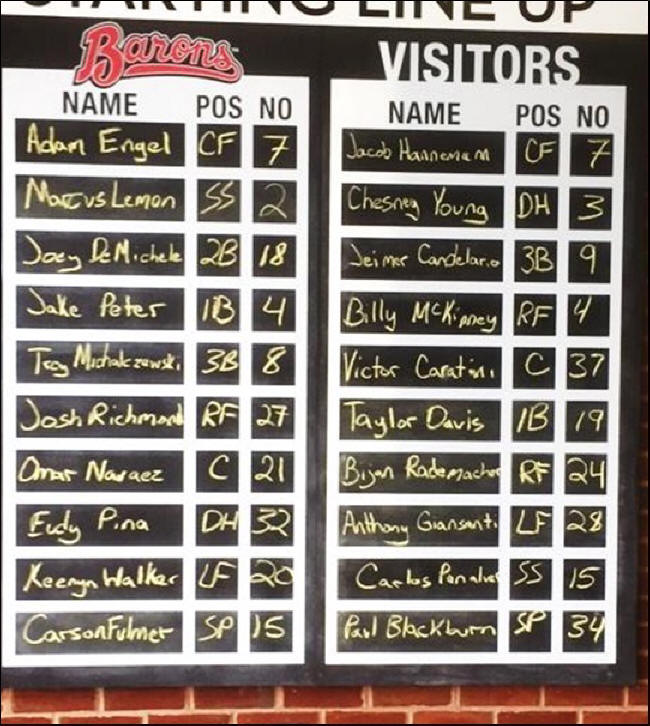 STARTING LINE UP
Barons VISITORS
NAME POS NO NAME POS NO
Adam Engel CF 7 Jacob Hannemann CF 7
Marcus Lemon SS 2 Chesney Young DH 3
Joey DeMichele 2B 18 Jeimer Candelario 3B 9
Jake Peter 1B 4 Billy McKinney RF 4
Trey Michalczewski 3B 8 Victor Caratini C 37
Josh Richmond RF 27 Taylor Davis 1B 19
Omar Navaez C 21 Bijan Rademacher RF 24
Eudy Pina DH 32 Anthony Giansanti LF 28
Keenyn Walker LF 20 Carlos SS 15
Carson Fulmer SP 15 Paul Blackburn SP 34